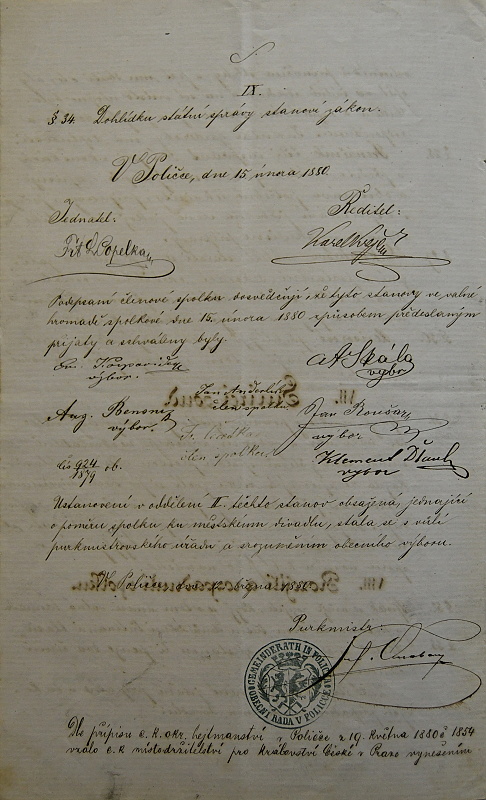 IX.
§ 34. Dohlídku státní správy stanoví zákon.
V Poličce, dne 15. února 1880.
Jednatel:
Ředitel:
Popelka
Karel
Podepsaní členové spolku dosvědčují, že tyto stanovy ve valné
hromadě spolkové dne 15. února 1880 způsobem předeslaným
přijaty a schváleny byly.
výbor.
A Skála
výbor
Jan
člen spolku.
Aug.
výbor.
Fr.
člen spolku.
Jan
výbor
Klement
výbor
čís 924/1879 ob.
Ustanovení v oddělení II. těchto stanov obsažená, jednající
o poměru spolku ku městskému divadlu, stala se s vůlí
purkmistrovského úřadu a srozuměním obecního výboru.
V Poličce, dne 12. 1880.
Purkmistr:
GEMEINDERATH IN
OBECNÍ RADA V POLIČCE
Dle přípisu c. k. okr. hejtmanství v Poličce z 19. května 1880 č 1854
vzalo c. k místodržitelství pro království České v Praze vynesením